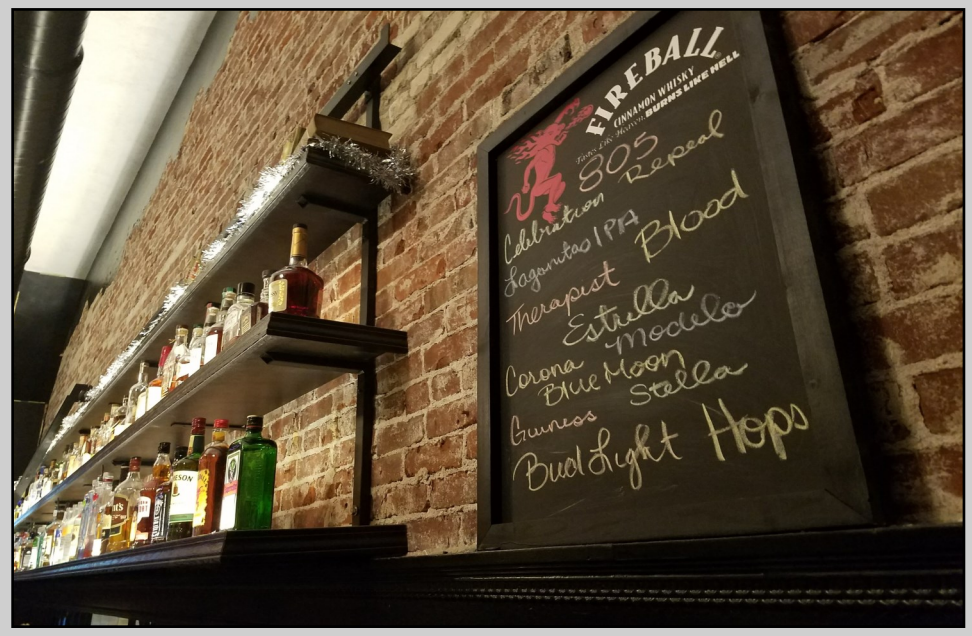 FIREBALL
CINNAMON WHISKY
Tastes Like Heaven BURNS LIKE HELL
805
Celebration Repeal
Lagunitas IPA Blood
Therapist
Estrella
Modelo
Corona
Blue Moon
Stella
Guiness
Bud Light Hops